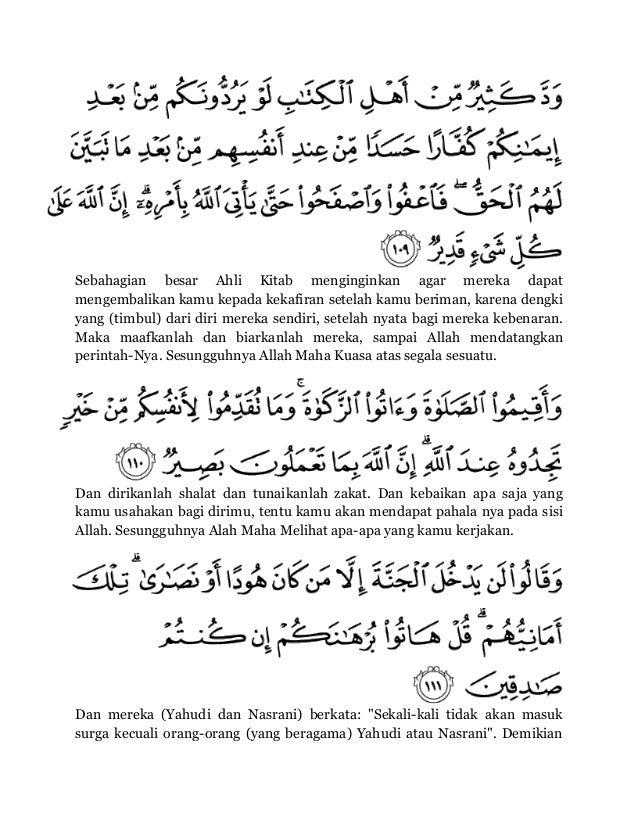 وَدَّ كَثِيرٌ مِّنْ أَهْلِ ٱلْكِتَٰبِ لَوْ يَرُدُّونَكُم مِّنۢ بَعْدِ
إِيمَٰنِكُمْ كُفَّارًا حَسَدًا مِّنْ عِندِ أَنفُسِهِم مِّنۢ بَعْدِ مَا تَبَيَّنَ
لَهُمُ ٱلْحَقُّ ۖ فَٱعْفُوا۟ وَٱصْفَحُوا۟ حَتَّىٰ يَأْتِىَ ٱللَّهُ بِأَمْرِهِۦٓ ۗ إِنَّ ٱللَّهَ عَلَىٰ
كُلِّ شَىْءٍ قَدِيرٌ ١٠٩
Sebahagian besar Ahli Kitab menginginkan agar mereka dapat
mengembalikan kamu kepada kekafiran setelah kamu beriman, karena dengki
yang (timbul) dari diri mereka sendiri, setelah nyata bagi mereka kebenaran.
Maka maafkanlah dan biarkanlah mereka, sampai Allah mendatangkan
perintah-Nya. Sesungguhnya Allah Maha Kuasa atas segala sesuatu.
وَأَقِيمُوا۟ ٱلصَّلَوٰةَ وَءَاتُوا۟ ٱلزَّكَوٰةَ ۚ وَمَا تُقَدِّمُوا۟ لِأَنفُسِكُم مِّنْ خَيْرٍ
تَجِدُوهُ عِندَ ٱللَّهِ ۗ إِنَّ ٱللَّهَ بِمَا تَعْمَلُونَ بَصِيرٌ ١١٠
Dan dirikanlah shalat dan tunaikanlah zakat. Dan kebaikan apa saja yang
kamu usahakan bagi dirimu, tentu kamu akan mendapat pahala nya pada sisi
Allah. Sesungguhnya Alah Maha Melihat apa-apa yang kamu kerjakan.
وَقَالُوا۟ لَن يَدْخُلَ ٱلْجَنَّةَ إِلَّا مَن كَانَ هُودًا أَوْ نَصَٰرَىٰ ۗ تِلْكَ
أَمَانِيُّهُمْ ۗ قُلْ هَاتُوا۟ بُرْهَٰنَكُمْ إِن كُنتُمْ
صَٰدِقِينَ ١١١
Dan mereka (Yahudi dan Nasrani) berkata: "Sekali-kali tidak akan masuk
surga kecuali orang-orang (yang beragama) Yahudi atau Nasrani". Demikian